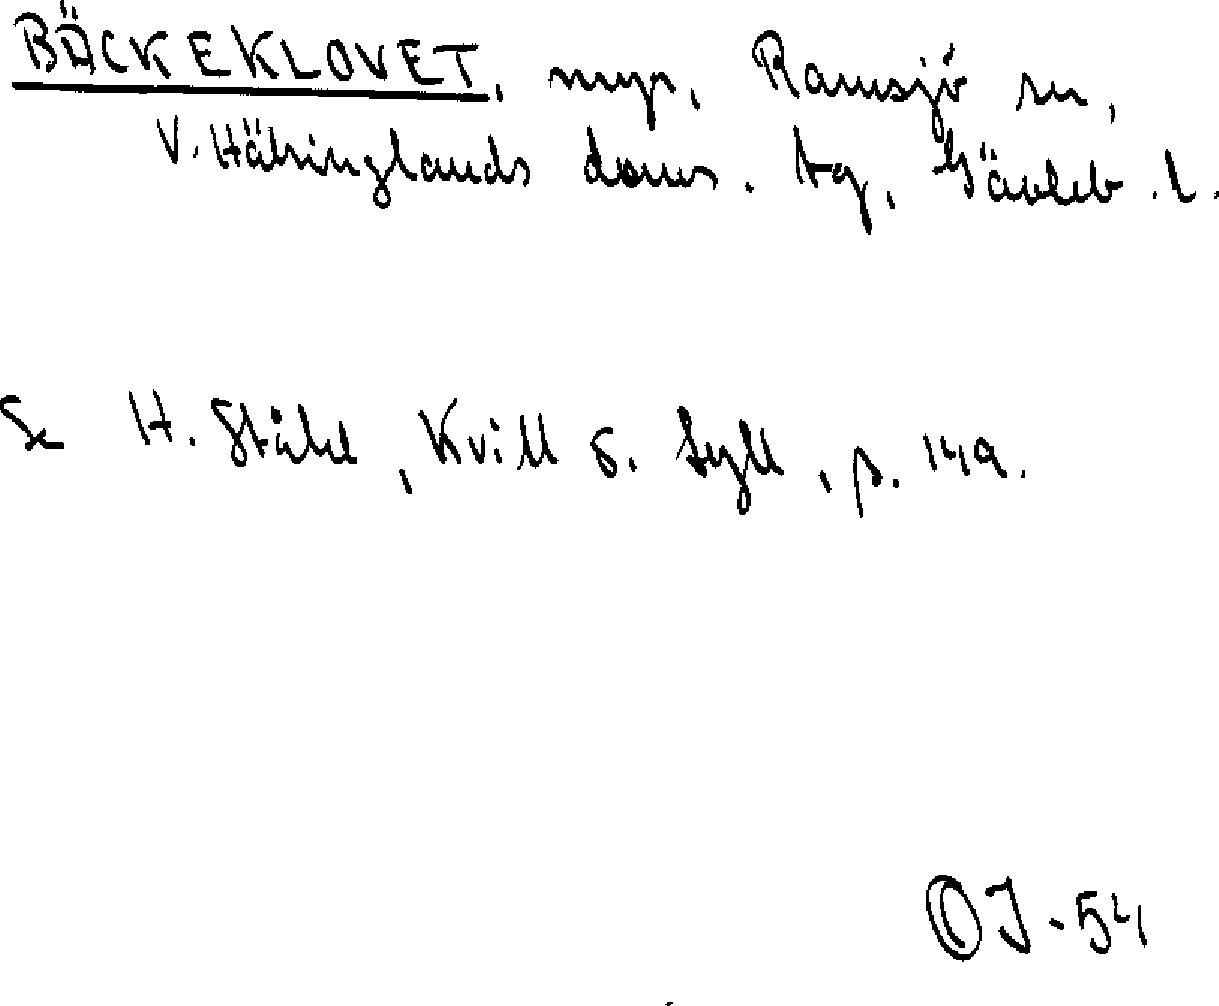 BÄCKEKLOVET, myr, Ramsjö sn,
V. Hälsinglands doms. tg, Gävleb. l.
Se H. Ståhl, Kvill o. tyll, s. 149.
OJ-54